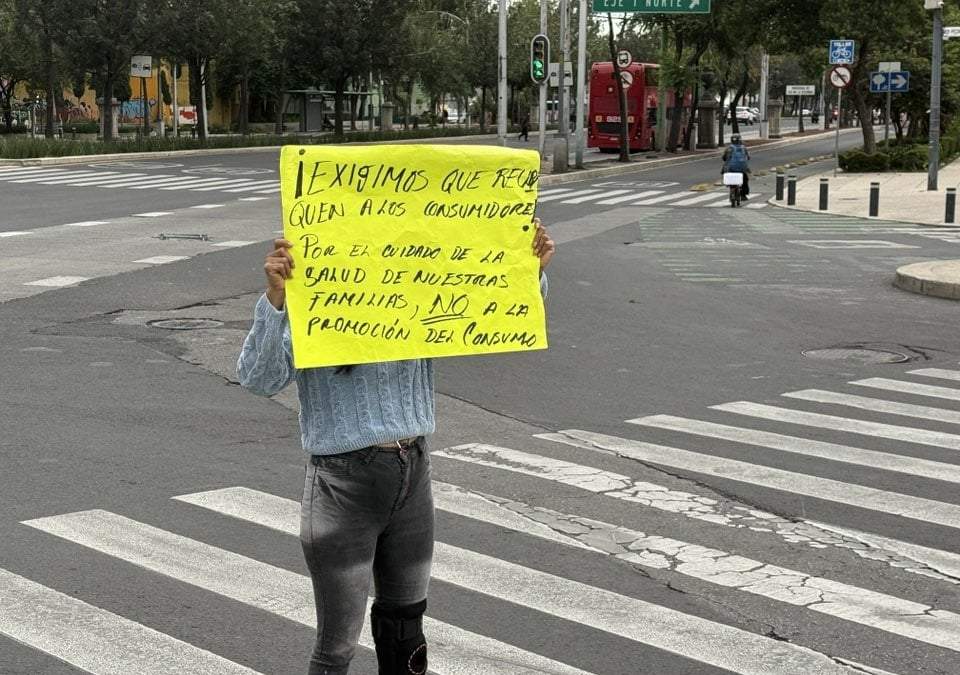 EJE 1 NORTE
¡EXIGIMOS QUE REUBI
QUEN A LOS CONSUMIDORES!
POR EL CUIDADO DE LA
SALUD DE NUESTRAS
FAMILIAS, NO A LA
PROMOCIÓN DEL CONSUMO